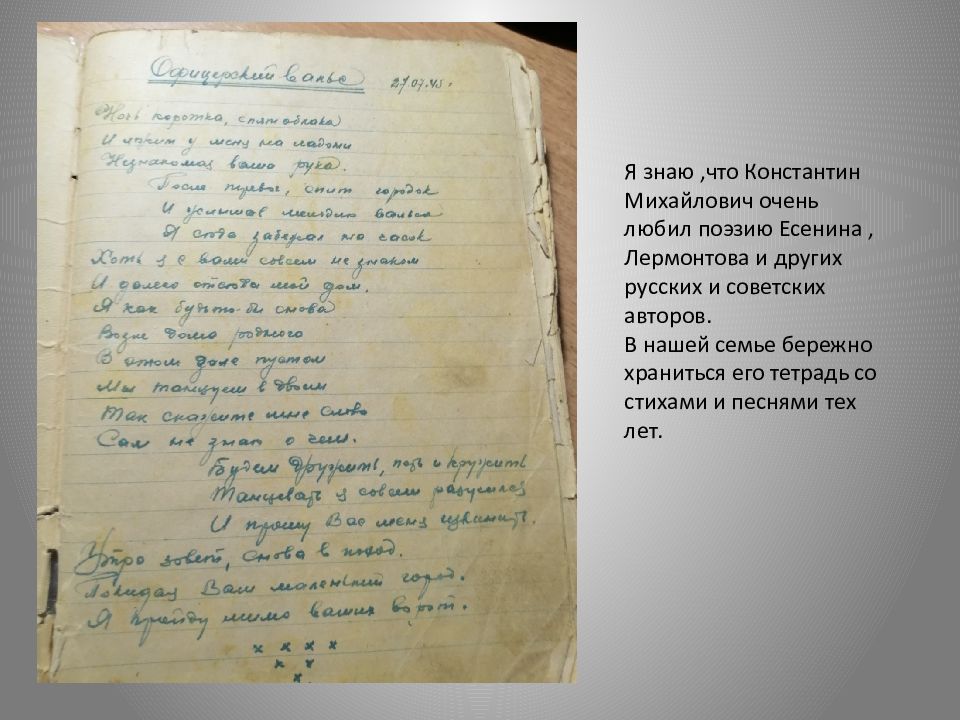 Офицерский вальс 27.07.45 г.
Ночь коротка, спят облака
И лежит у меня на ладони
Незнакомая ваша рука.
После тревог, спит городок
Я услышал мелодию вальса
Я сюда заберел на часок
Хоть я с вами совсем не знаком
И далеко отсюда мой дом.
Я как будьто-бы снова
Возле дома родного
В этом зале пустом
Мы танцуем в двоем
Так скажите мне слово
Сам не знаю о чем.
Будем дружить, петь и кружить
Танцевать я совсем разучился
И прошу Вас меня извинить.
Утро зовет, снова в поход.
Покидая Ваш маленький город.
Я пройду мимо ваших ворот.
х х х х
х х
х
Я знаю ,что Константин
Михайлович очень
любил поэзию Есенина ,
Лермонтова и других
русских и советских
авторов.
В нашей семье бережно
храниться его тетрадь со
стихами и песнями тех
лет.